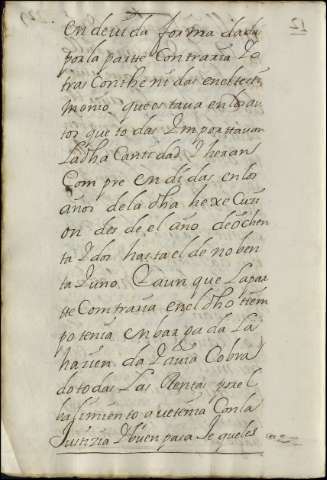 12
en devida forma dada
por la parte Contraria Y o
tras Conthenidas en el testi
monio que estava en los au
tos que todas Ymportavan
La dha Cantidad Y heran
Compre en di das en los
años de la dha hexe Cuzi
on des de el año de ochen
ta Y dos hasta el de noben
ta Y uno Y aun que La par
te Contraria en el dho tiem
po tenia en bar ga da La
hazien da Y avia Cobra
do todas Las Rentas por el
hasimiento que tenia Con la
Justizia Y buen pasa Je que les